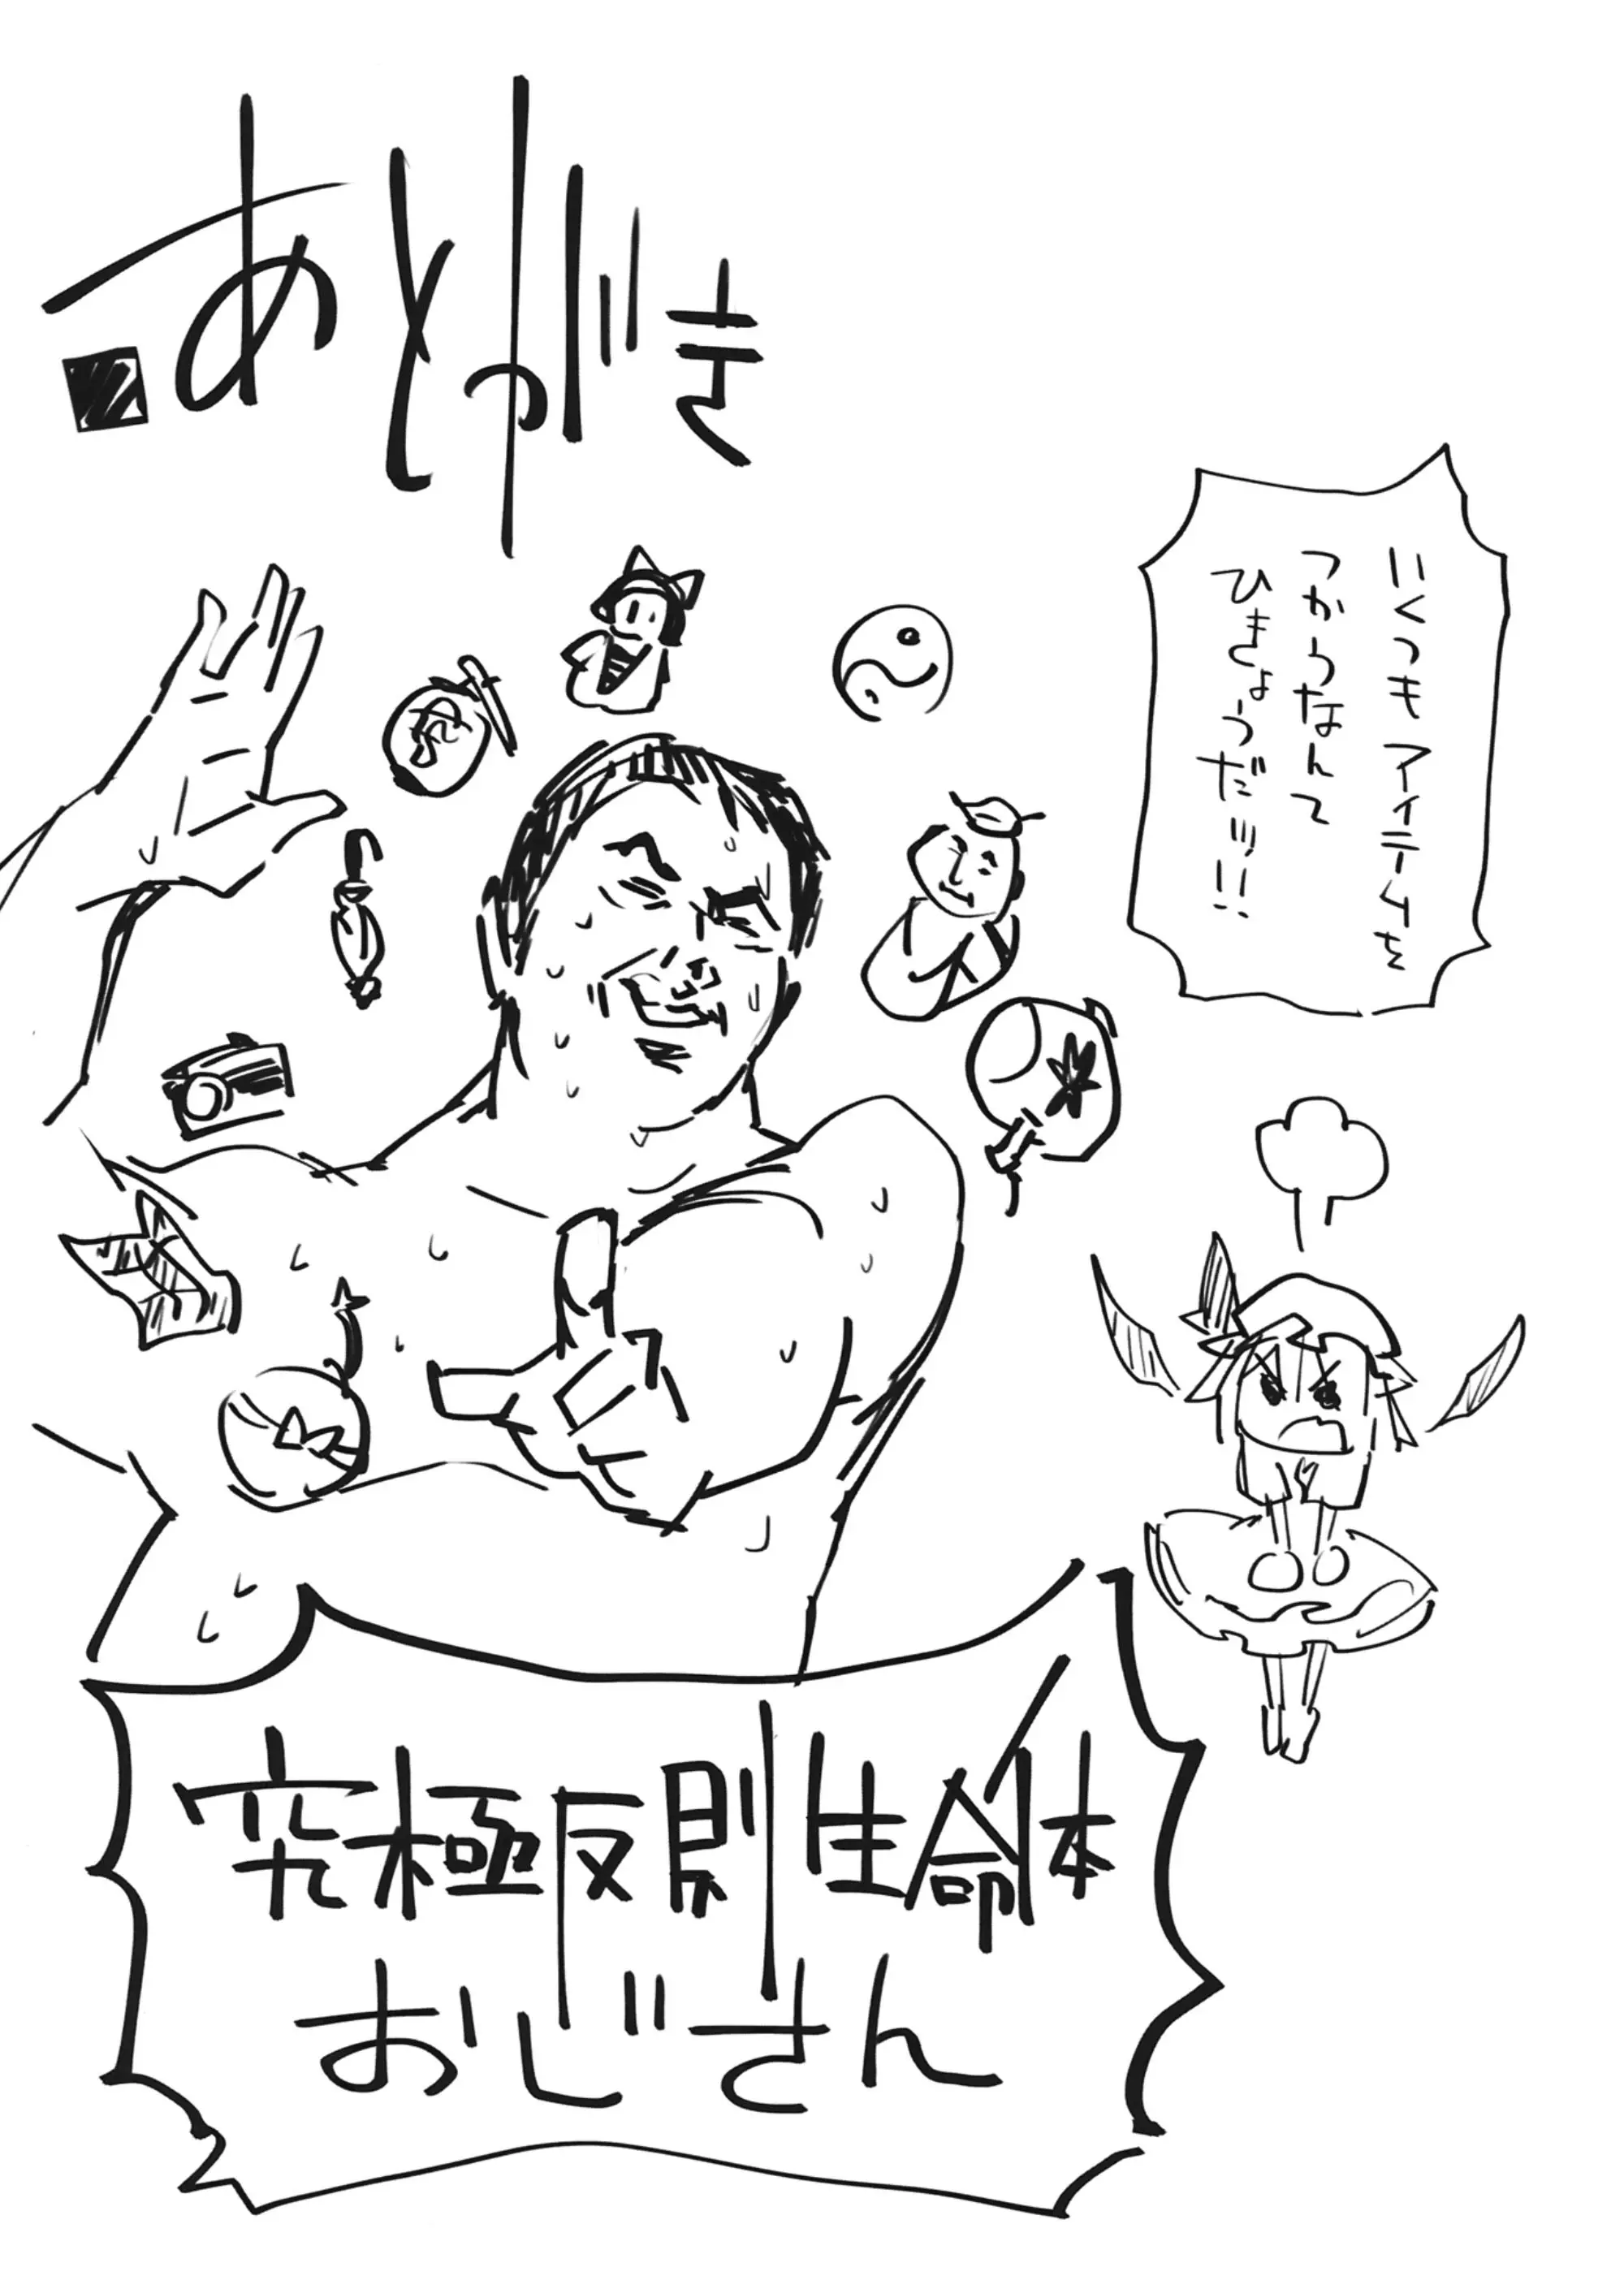 あとがき
いくつもアイテムを
つかうなんて
ひきょうだ!!!!!
究極反則生命体
おじさん